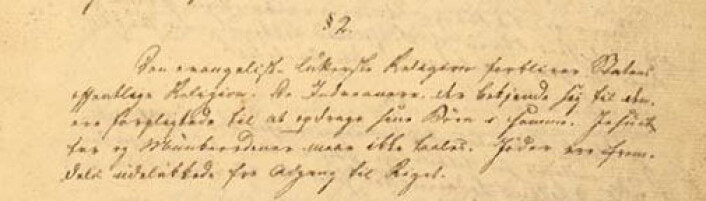 § 2.
Den evangelisk-lutherske Religion forbliver Statens
offentlige Religion. De Indvaanere, der bekjende sig til den,
ere forpligtede til at opdrage sine Børn i samme. Jesuit-
ter og Munkeordener maae ikke taales. Jøder ere frem-
deles udelukkede fra Adgang til Riget.